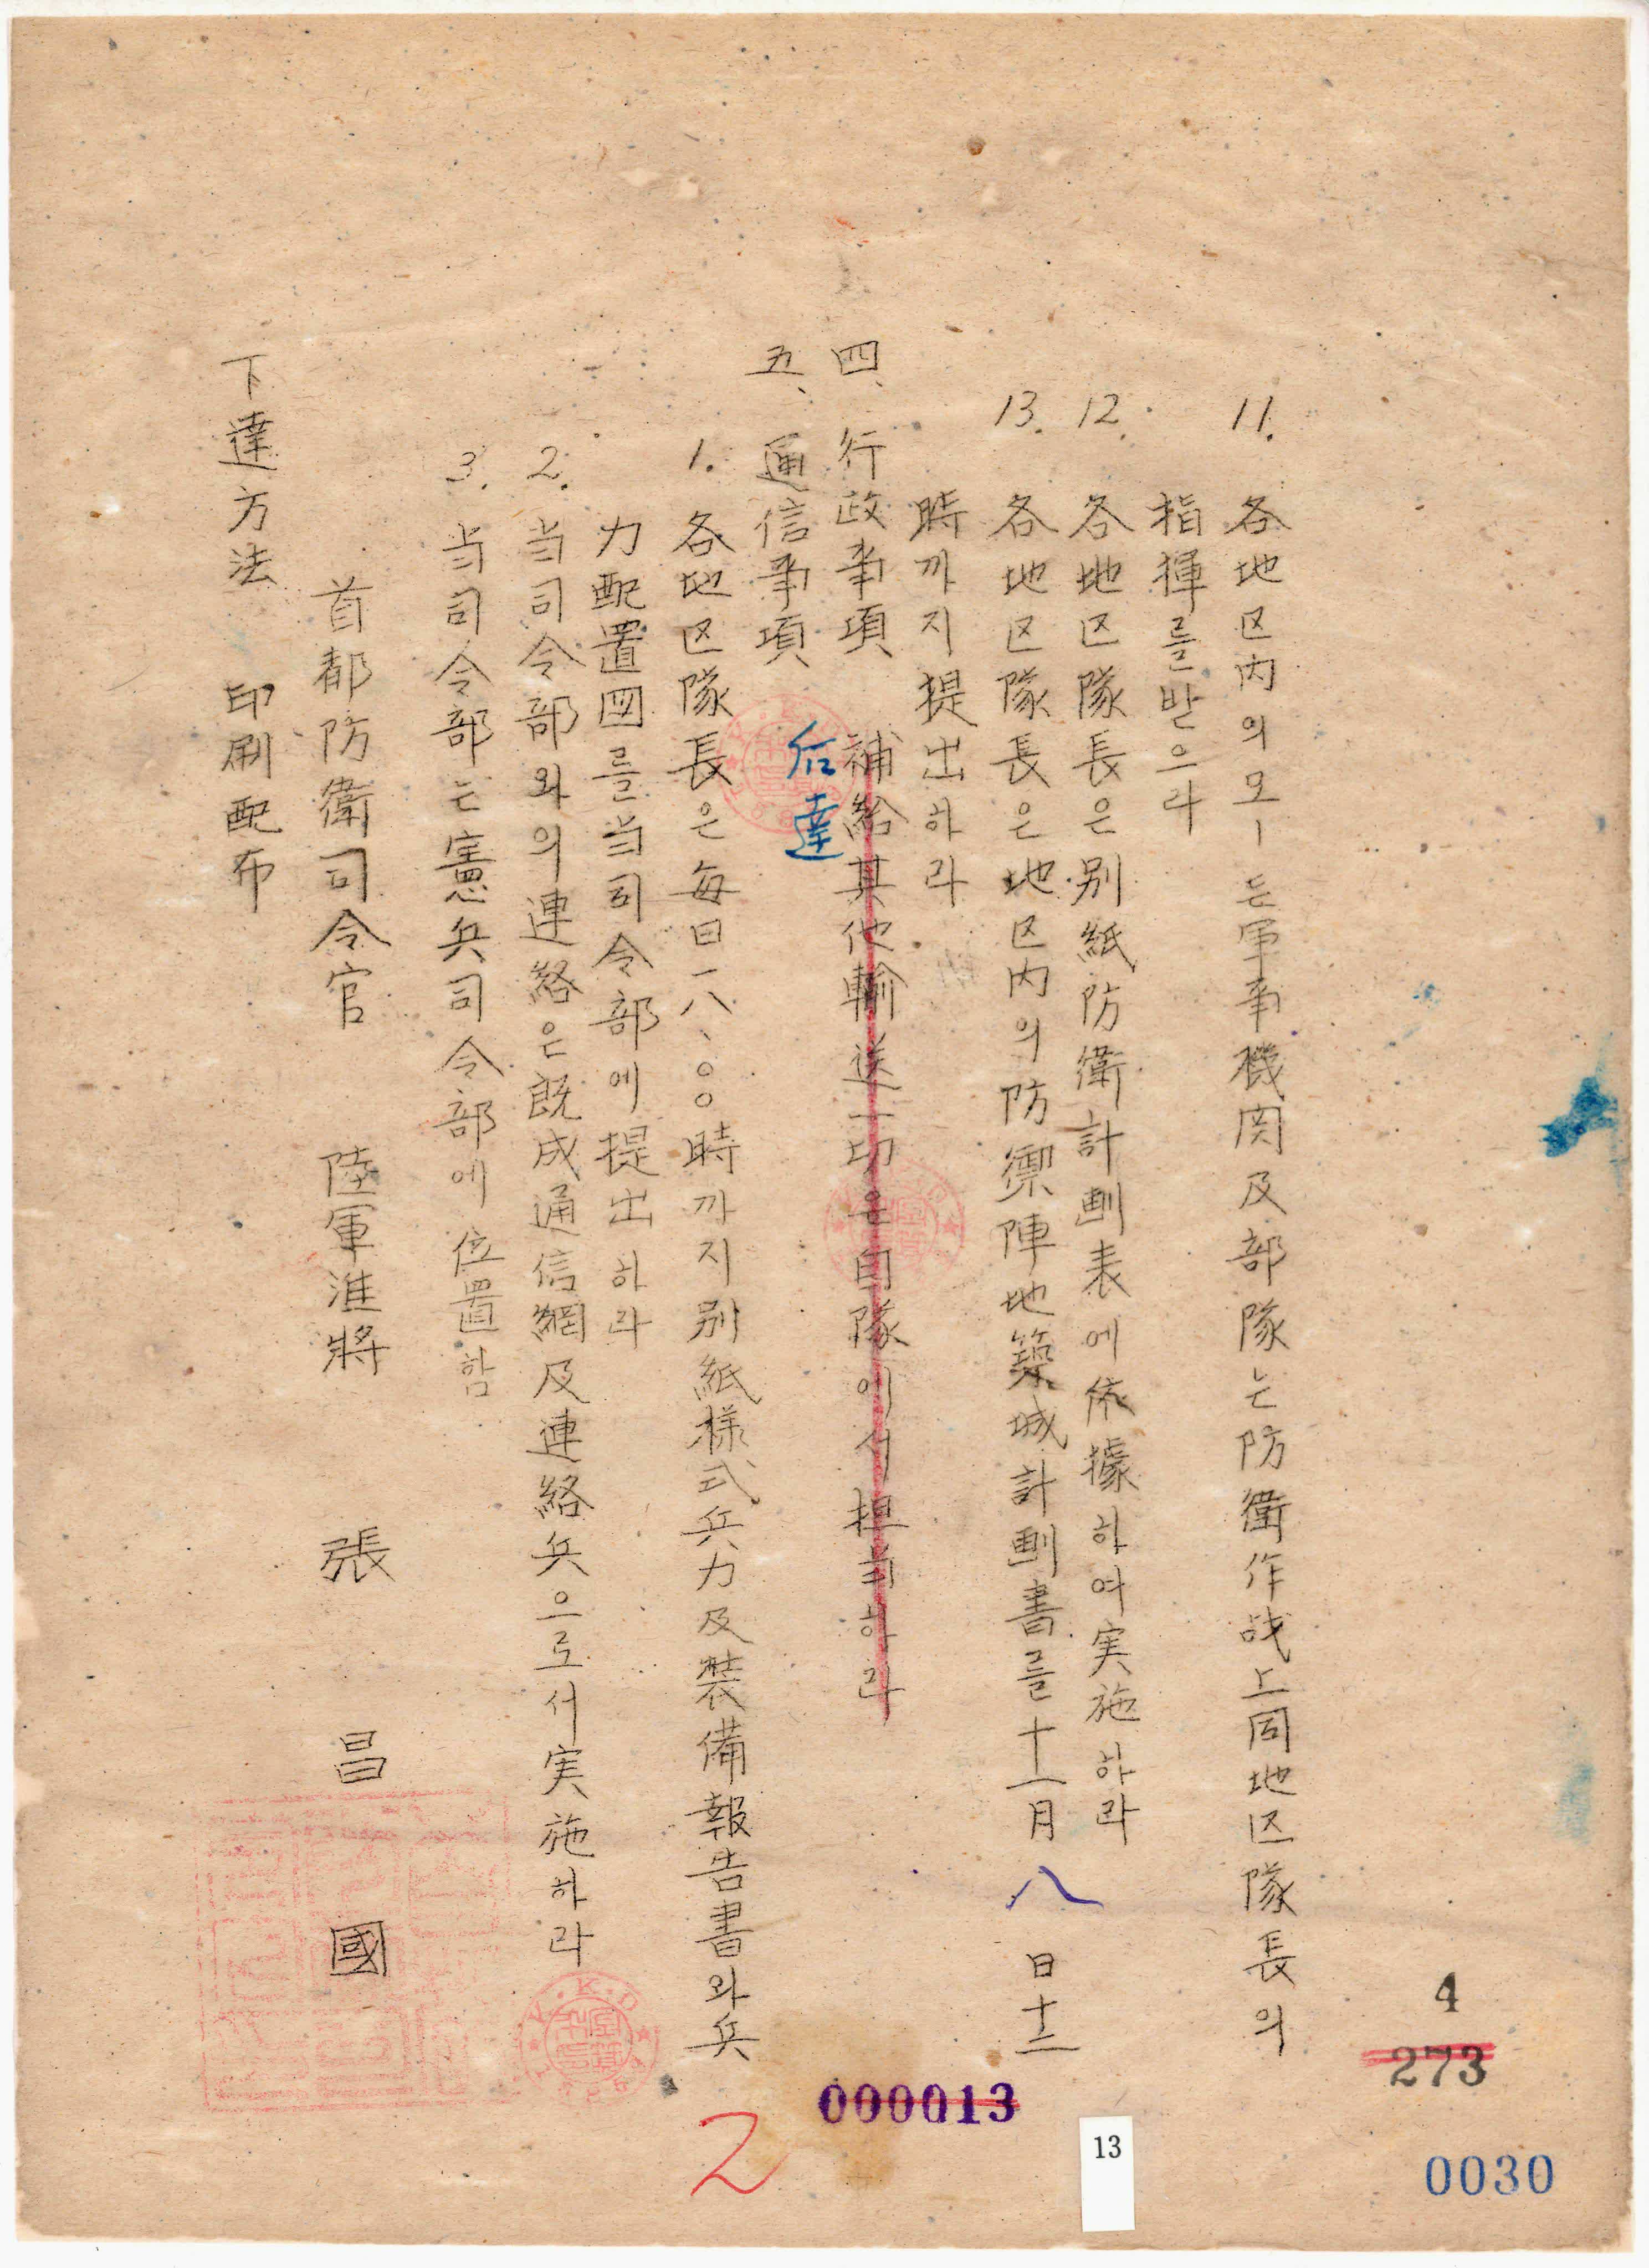 11. 各地区內의 모ー든軍事機関及部隊는防衛作战上同地区隊長의
指揮를받으라
12. 各地区隊長은別紙防衛計劃表에依據하여実施하라
13. 各地区隊長은地区内의防禦陣地築城計劃書를十一月八日十二
時까지提出하라
四、行政事項 補給其他輸送一切은自隊에서担当하라
后達
五、通信事項
1. 各地区隊長은每日一八、〇〇時까지別紙樣式兵力及裝備報告書와兵
力配置図를当司令部에提出하라
2. 当司令部와의連絡은既成通信網及連絡兵으로서実施하라
3. 当司令部는憲兵司令部에位置함
首都防衛司令官 陸軍准將 張昌國
下達方法 印刷配布
4
273
000013
2
13
0030